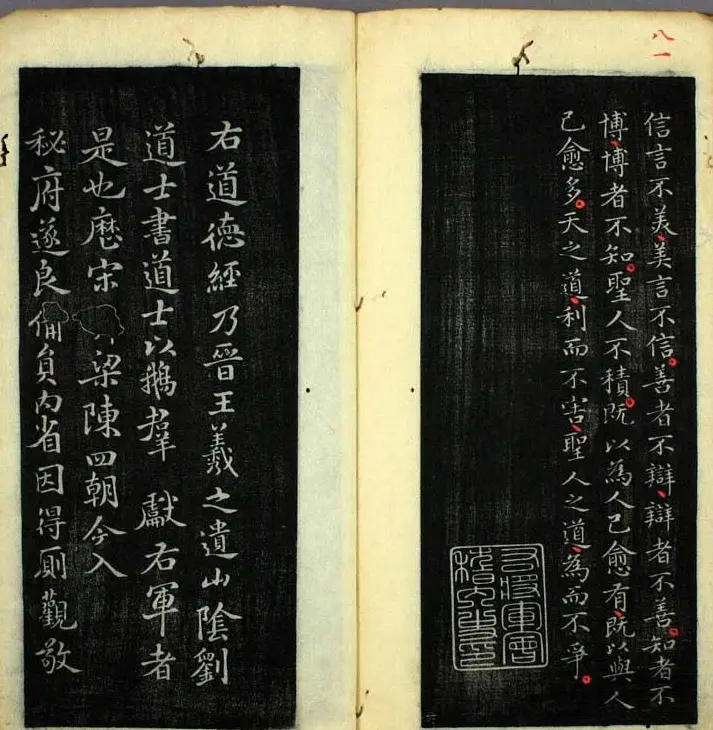 八一
信言不美、美言不信。善者不辯、辯者不善。知者不
博、博者不知。聖人不積。既以為人已愈有、既以與人
已愈多。天之道、利而不害、聖人之道、為而不爭。
右將軍會
稽內史印
右道德經乃晉王羲之遺山陰劉
道士書道士以鵝羣獻右軍者
是也歷宋梁陳四朝今入
秘府遂良備員內省因得厠觀敬